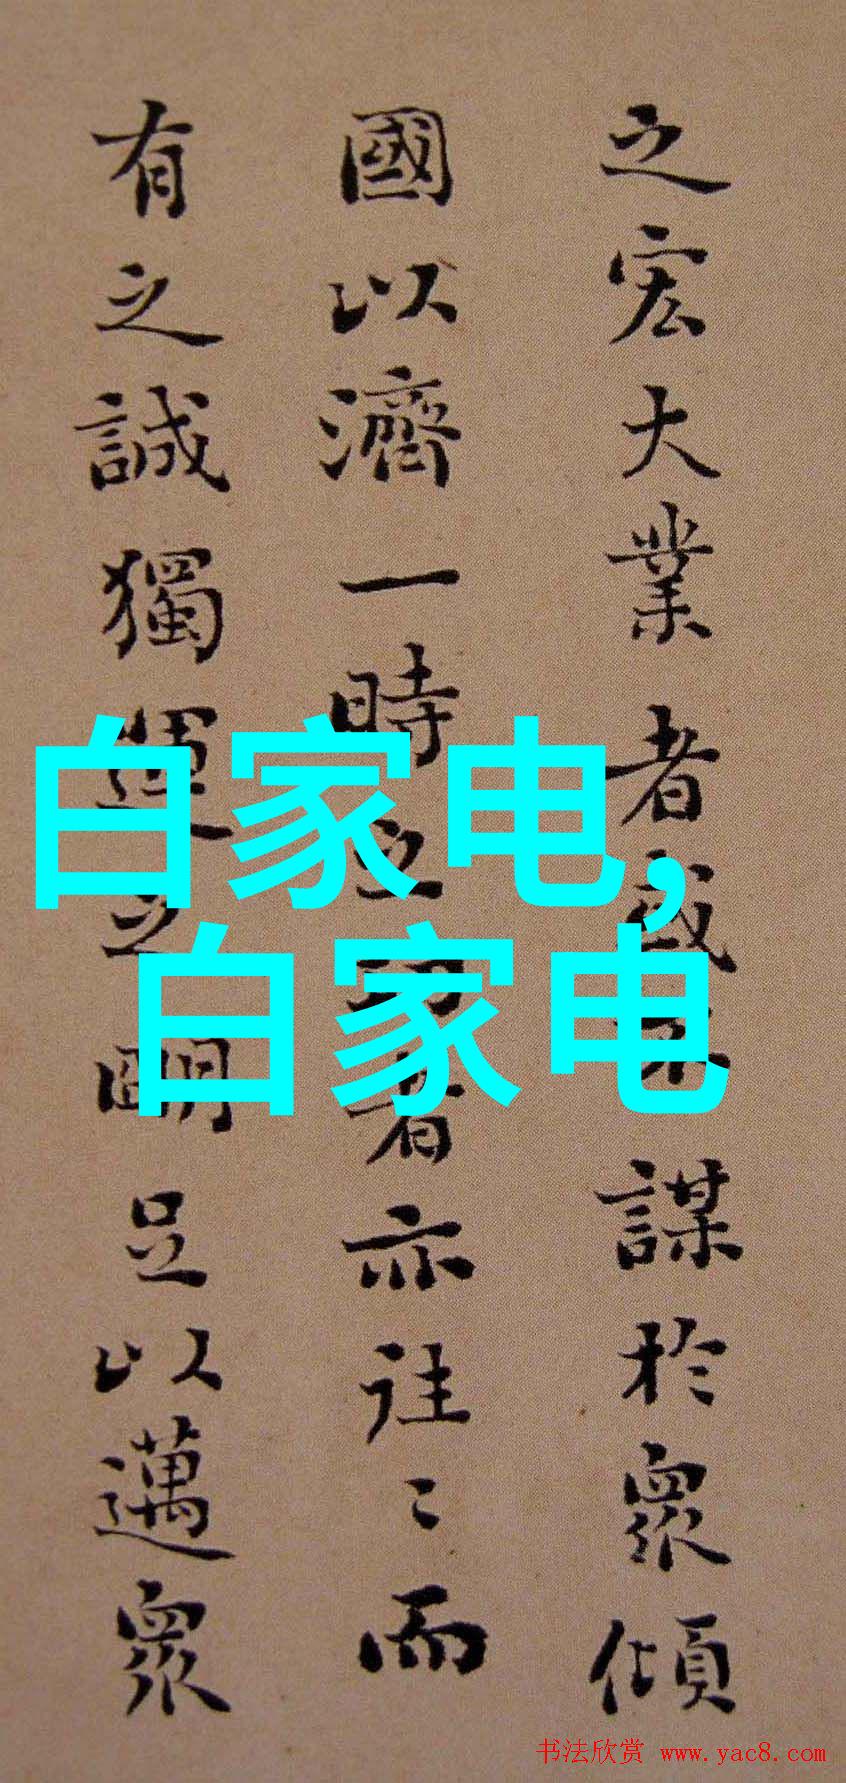 之宏大業者或謀於衆傾
國以濟一時之者亦往〻而
有之誠獨運之明足以邁衆
白家电,
白家电
书法欣赏 www.yac8.com